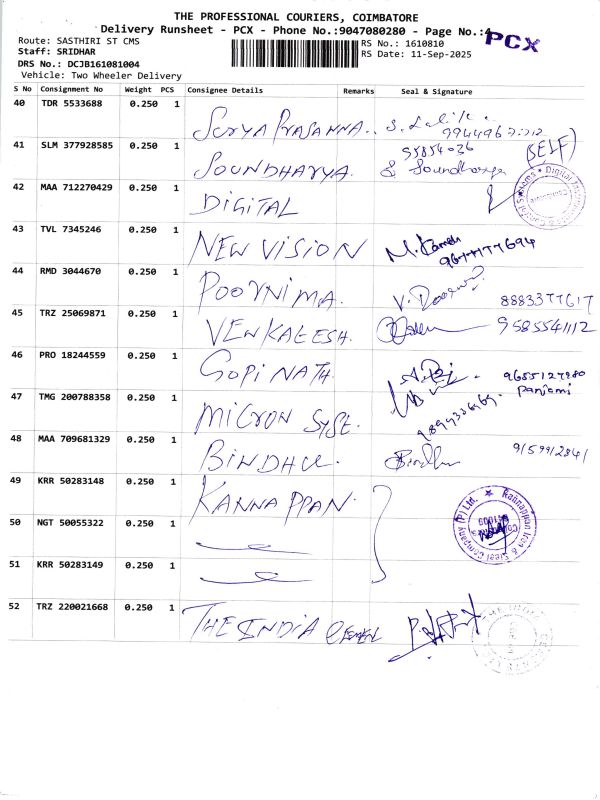 THE PROFESSIONAL COURIERS, COIMBATORE
Delivery Runsheet - PCX - Phone No.:9047080280 - Page No.:4
PCX
Route: SASTHIRI ST CMS
Staff: SRIDHAR
DRS No.: DCJB161081004
Vehicle: Two Wheeler Delivery
RS No.: 1610810
RS Date: 11-Sep-2025
S No Consignment No Weight PCS Consignee Details Remarks Seal & Signature
40 TDR 5533688 0.250 1 SURYA PRASANNA..
41 SLM 377928585 0.250 1 SOUNDHARYA. 95854036 (SELF)
& Soundharya
42 MAA 712270429 0.250 1 DIGITAL
43 TVL 7345246 0.250 1 NEW VISION
44 RMD 3044670 0.250 1 POORNIMA. 8883377617
45 TRZ 25069871 0.250 1 VENKATESH. 9585541112
46 PRO 18244559 0.250 1 GOPINATH. 9655127980
47 TMG 200788358 0.250 1 MICRON SYSTE.
48 MAA 709681329 0.250 1 BINDHU. Bindhu 9159912841
49 KRR 50283148 0.250 1 KANNAPPAN.
Kannappan Iron & Steel Company (P) Ltd.
50 NGT 50055322 0.250 1
51 KRR 50283149 0.250 1
52 TRZ 220021668 0.250 1 THE INDIA CEMEN